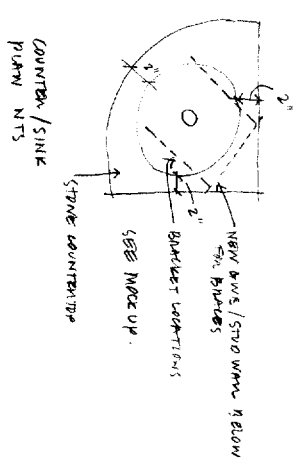 2"
2"
NEW GWB/STUD WALL BELOW
FOR BRACES
2"
BRACKET LOCATIONS
SEE MOCKUP.
STONE COUNTERTOP
COUNTER/SINK
PLAN NTS